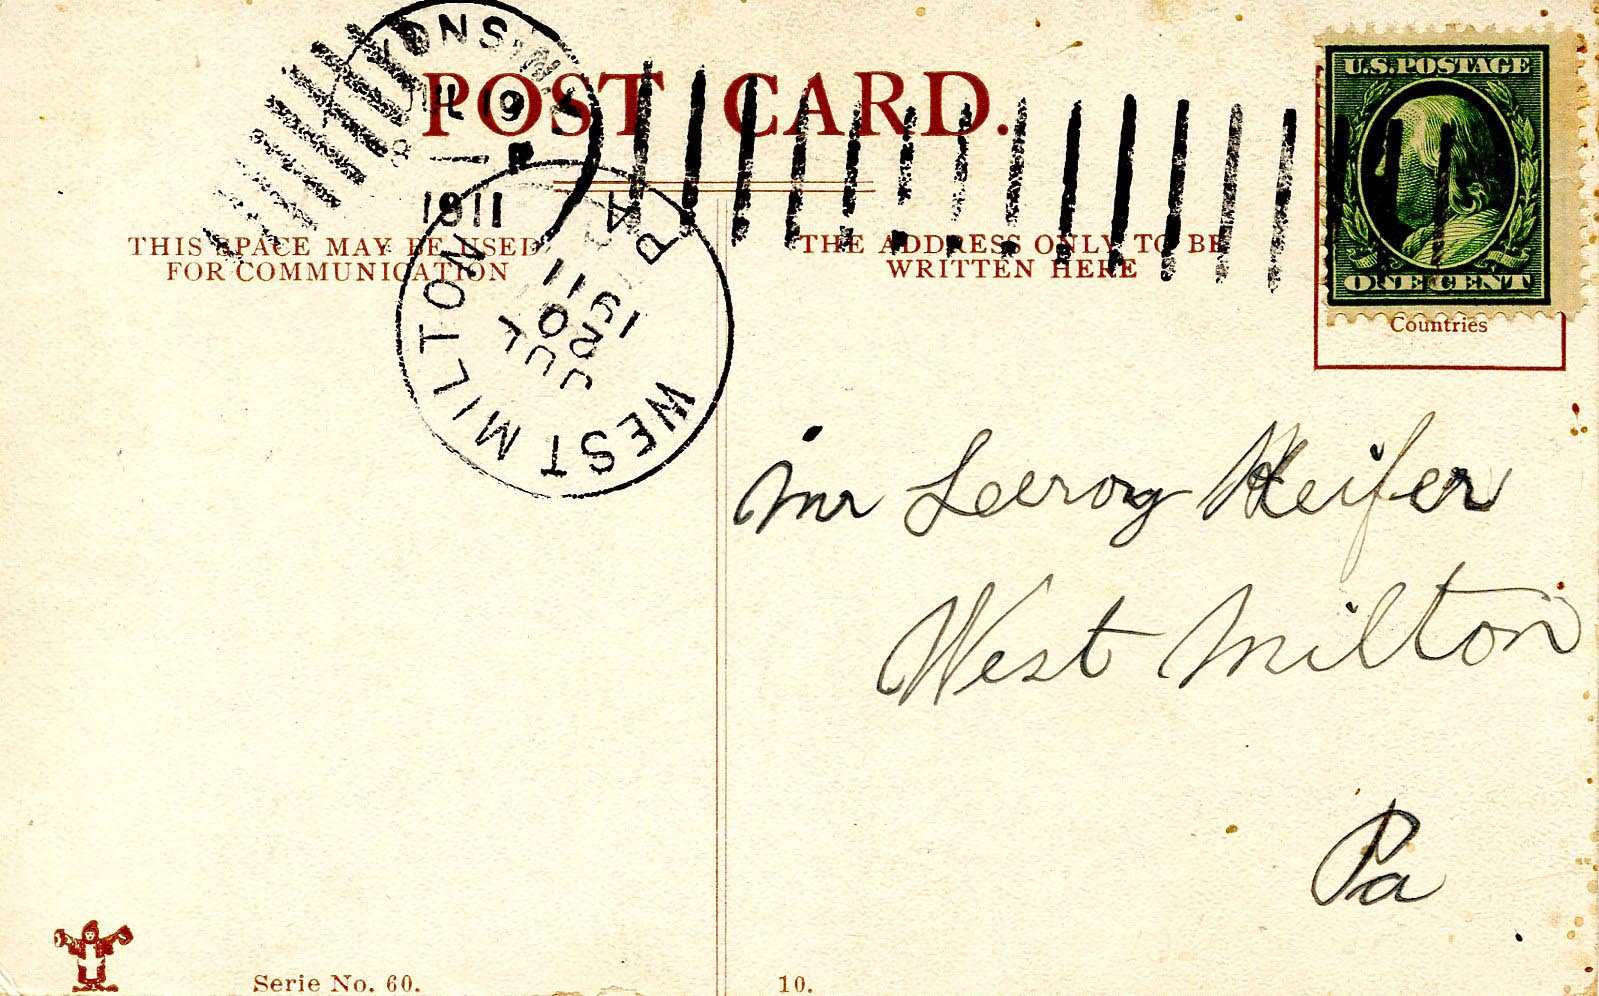 POST CARD.
THIS SPACE MAY BE USED
FOR COMMUNICATION
THE ADDRESS ONLY TO BE
WRITTEN HERE
U.S. POSTAGE
ONE CENT
Countries
JUL 19
8 - P
1911
WEST MILTON PA
JUL
20
1911
Mr Leeroy Heifer
West Milton
Pa
Serie No. 60.
10.